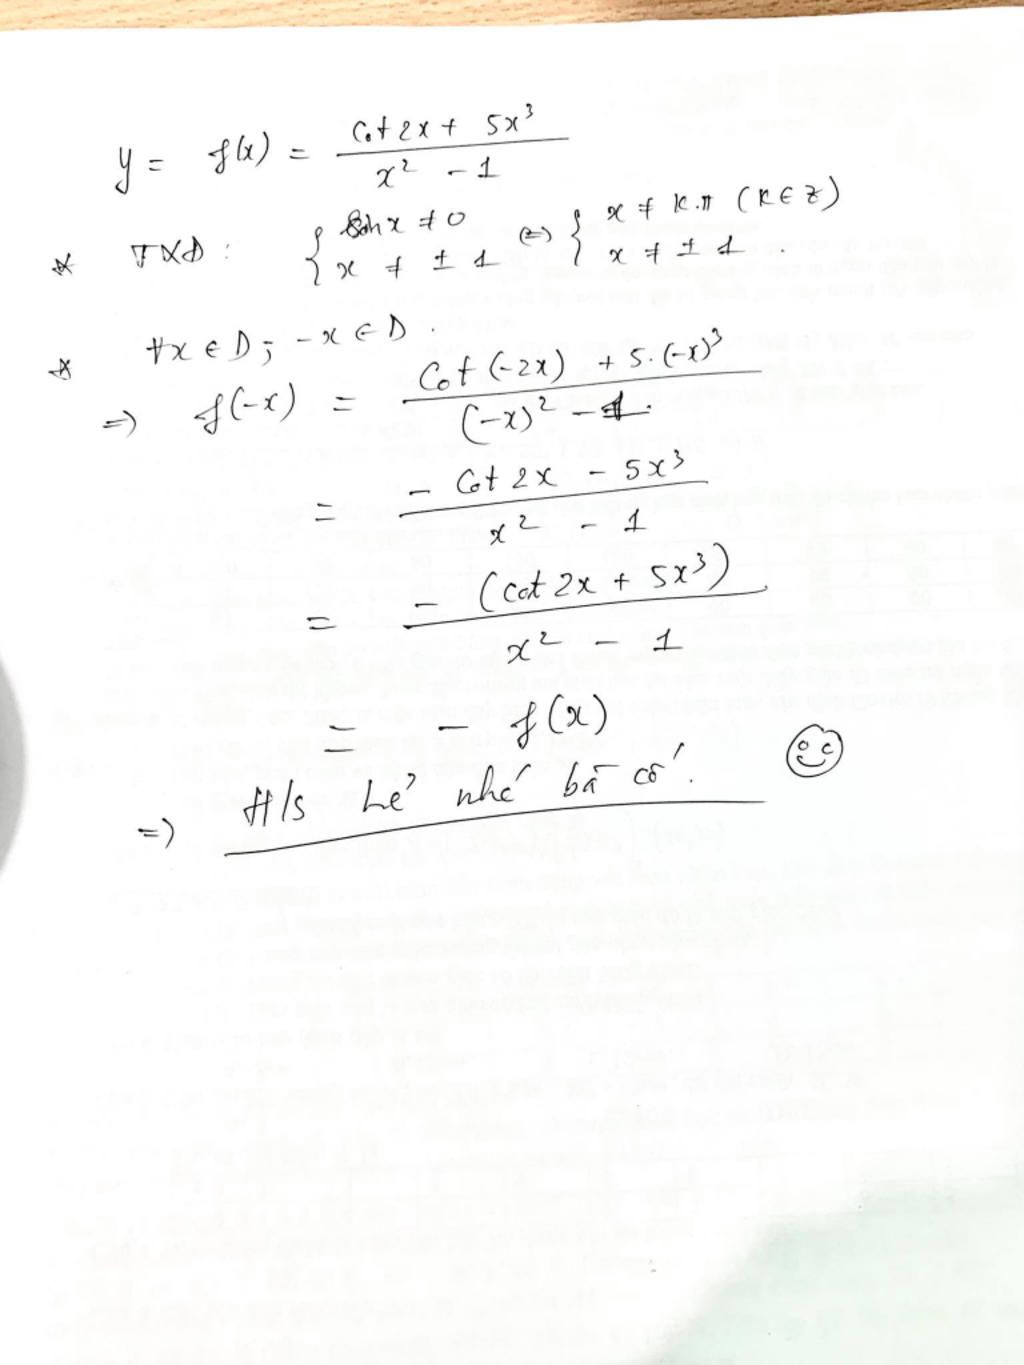 y = f(x) = (cot 2x + 5x³) / (x² - 1)
* TXD : { Sin x ≠ 0 ⇔ { x ≠ k.π (k ∈ Z)
{ x ≠ ± 1 { x ≠ ± 1
* ∀x ∈ D ; -x ∈ D .
⇒ f(-x) = (Cot (-2x) + 5.(-x)³) / ((-x)² - 1.)
= (- Cot 2x - 5x³) / (x² - 1)
= (- (cot 2x + 5x³)) / (x² - 1)
= - f(x)
⇒ H/s Lẻ nhé bā cố.